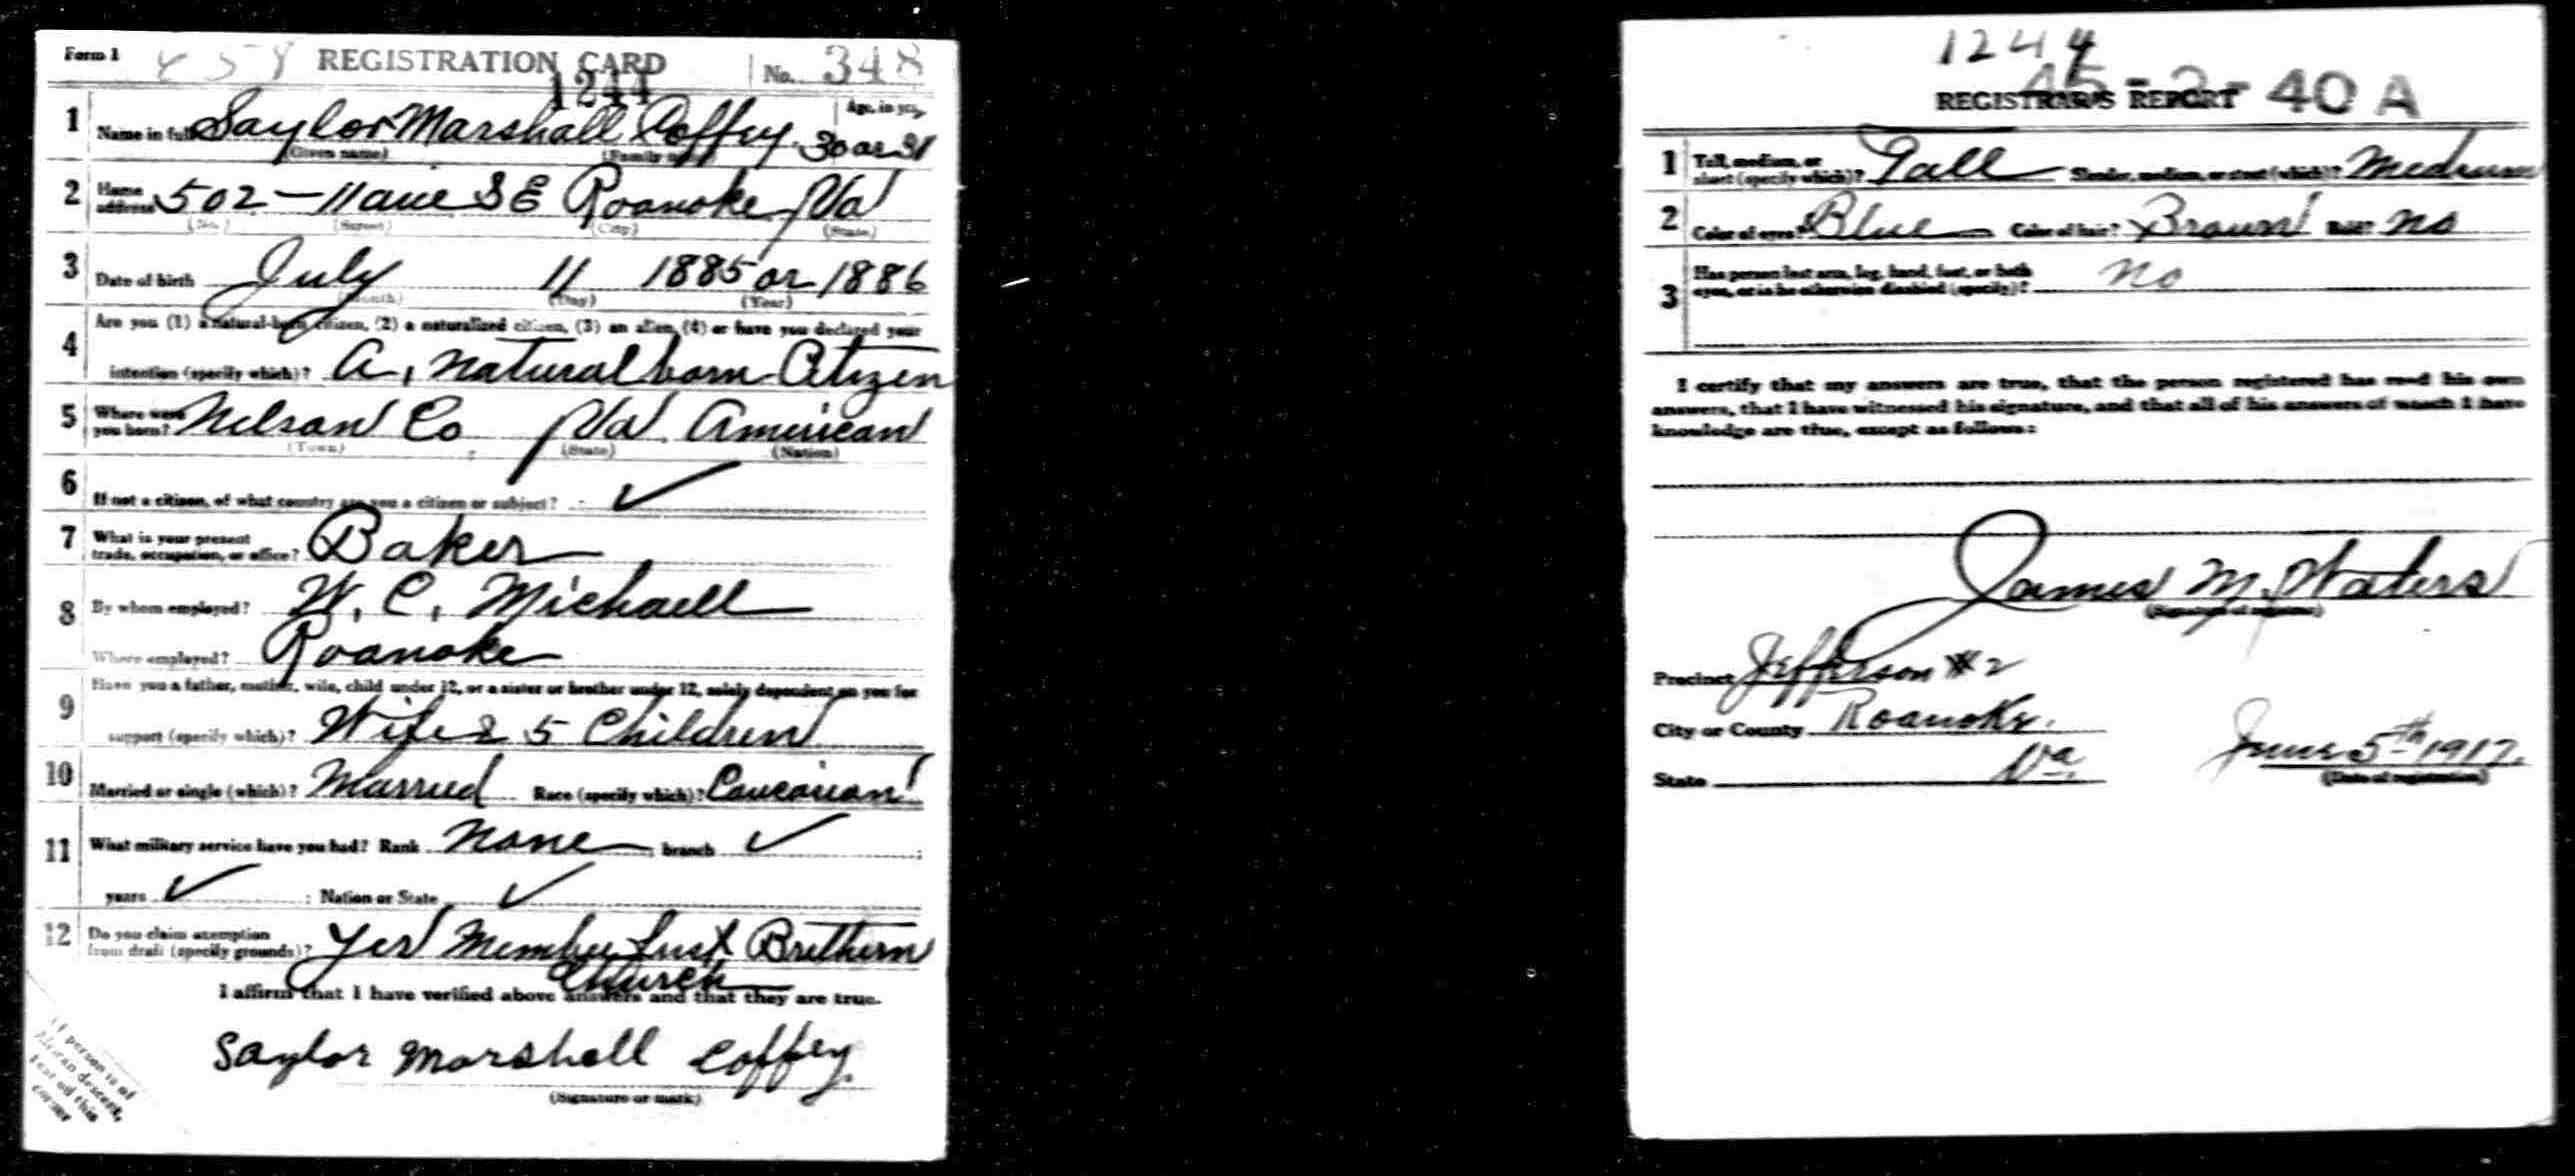 Form 1 458 REGISTRATION CARD No. 348
1244
1 Name in full Saylor Marshall Coffey Age, in yrs. 30 or 31
(Given name) (Family name)
2 Home address 502 - 11 ave S E Roanoke Va
(No.) (Street) (City) (State)
3 Date of birth July 11 1885 or 1886
(Month) (Day) (Year)
4 Are you (1) a natural-born citizen, (2) a naturalized citizen, (3) an alien, (4) or have you declared your
intention (specify which)? A, natural born Citizen
5 Where were you born? Nelson Co Va American
(Town) (State) (Nation)
6 If not a citizen, of what country are you a citizen or subject? ✓
7 What is your present trade, occupation, or office? Baker
8 By whom employed? W. C. Michaell
Where employed? Roanoke
9 Have you a father, mother, wife, child under 12, or a sister or brother under 12, solely dependent on you for
support (specify which)? Wife & 5 Children
10 Married or single (which)? Married Race (specify which)? Caucasian
11 What military service have you had? Rank None branch ✓
years ✓ ; Nation or State ✓
12 Do you claim exemption from draft (specify grounds)? Yes Member Brethern
Church
I affirm that I have verified above answers and that they are true.
Saylor Marshall Coffey
(Signature or mark)
If person is of
African descent,
tear off this
corner
1244
45-2-40 A
REGISTRAR'S REPORT
1 Tall, medium, or short (specify which)? Tall Slender, medium, or stout (which)? Medium
2 Color of eyes? Blue Color of hair? Brown Bald? no
3 Has person lost arm, leg, hand, foot, or both eyes, or is he otherwise disabled (specify)? no
I certify that my answers are true, that the person registered has read his own
answers, that I have witnessed his signature, and that all of his answers of which I have
knowledge are true, except as follows:
James M. Waters
(Signature of registrar)
Precinct Jefferson #2
City or County Roanoke.
State Va. June 5th 1917.
(Date of registration)